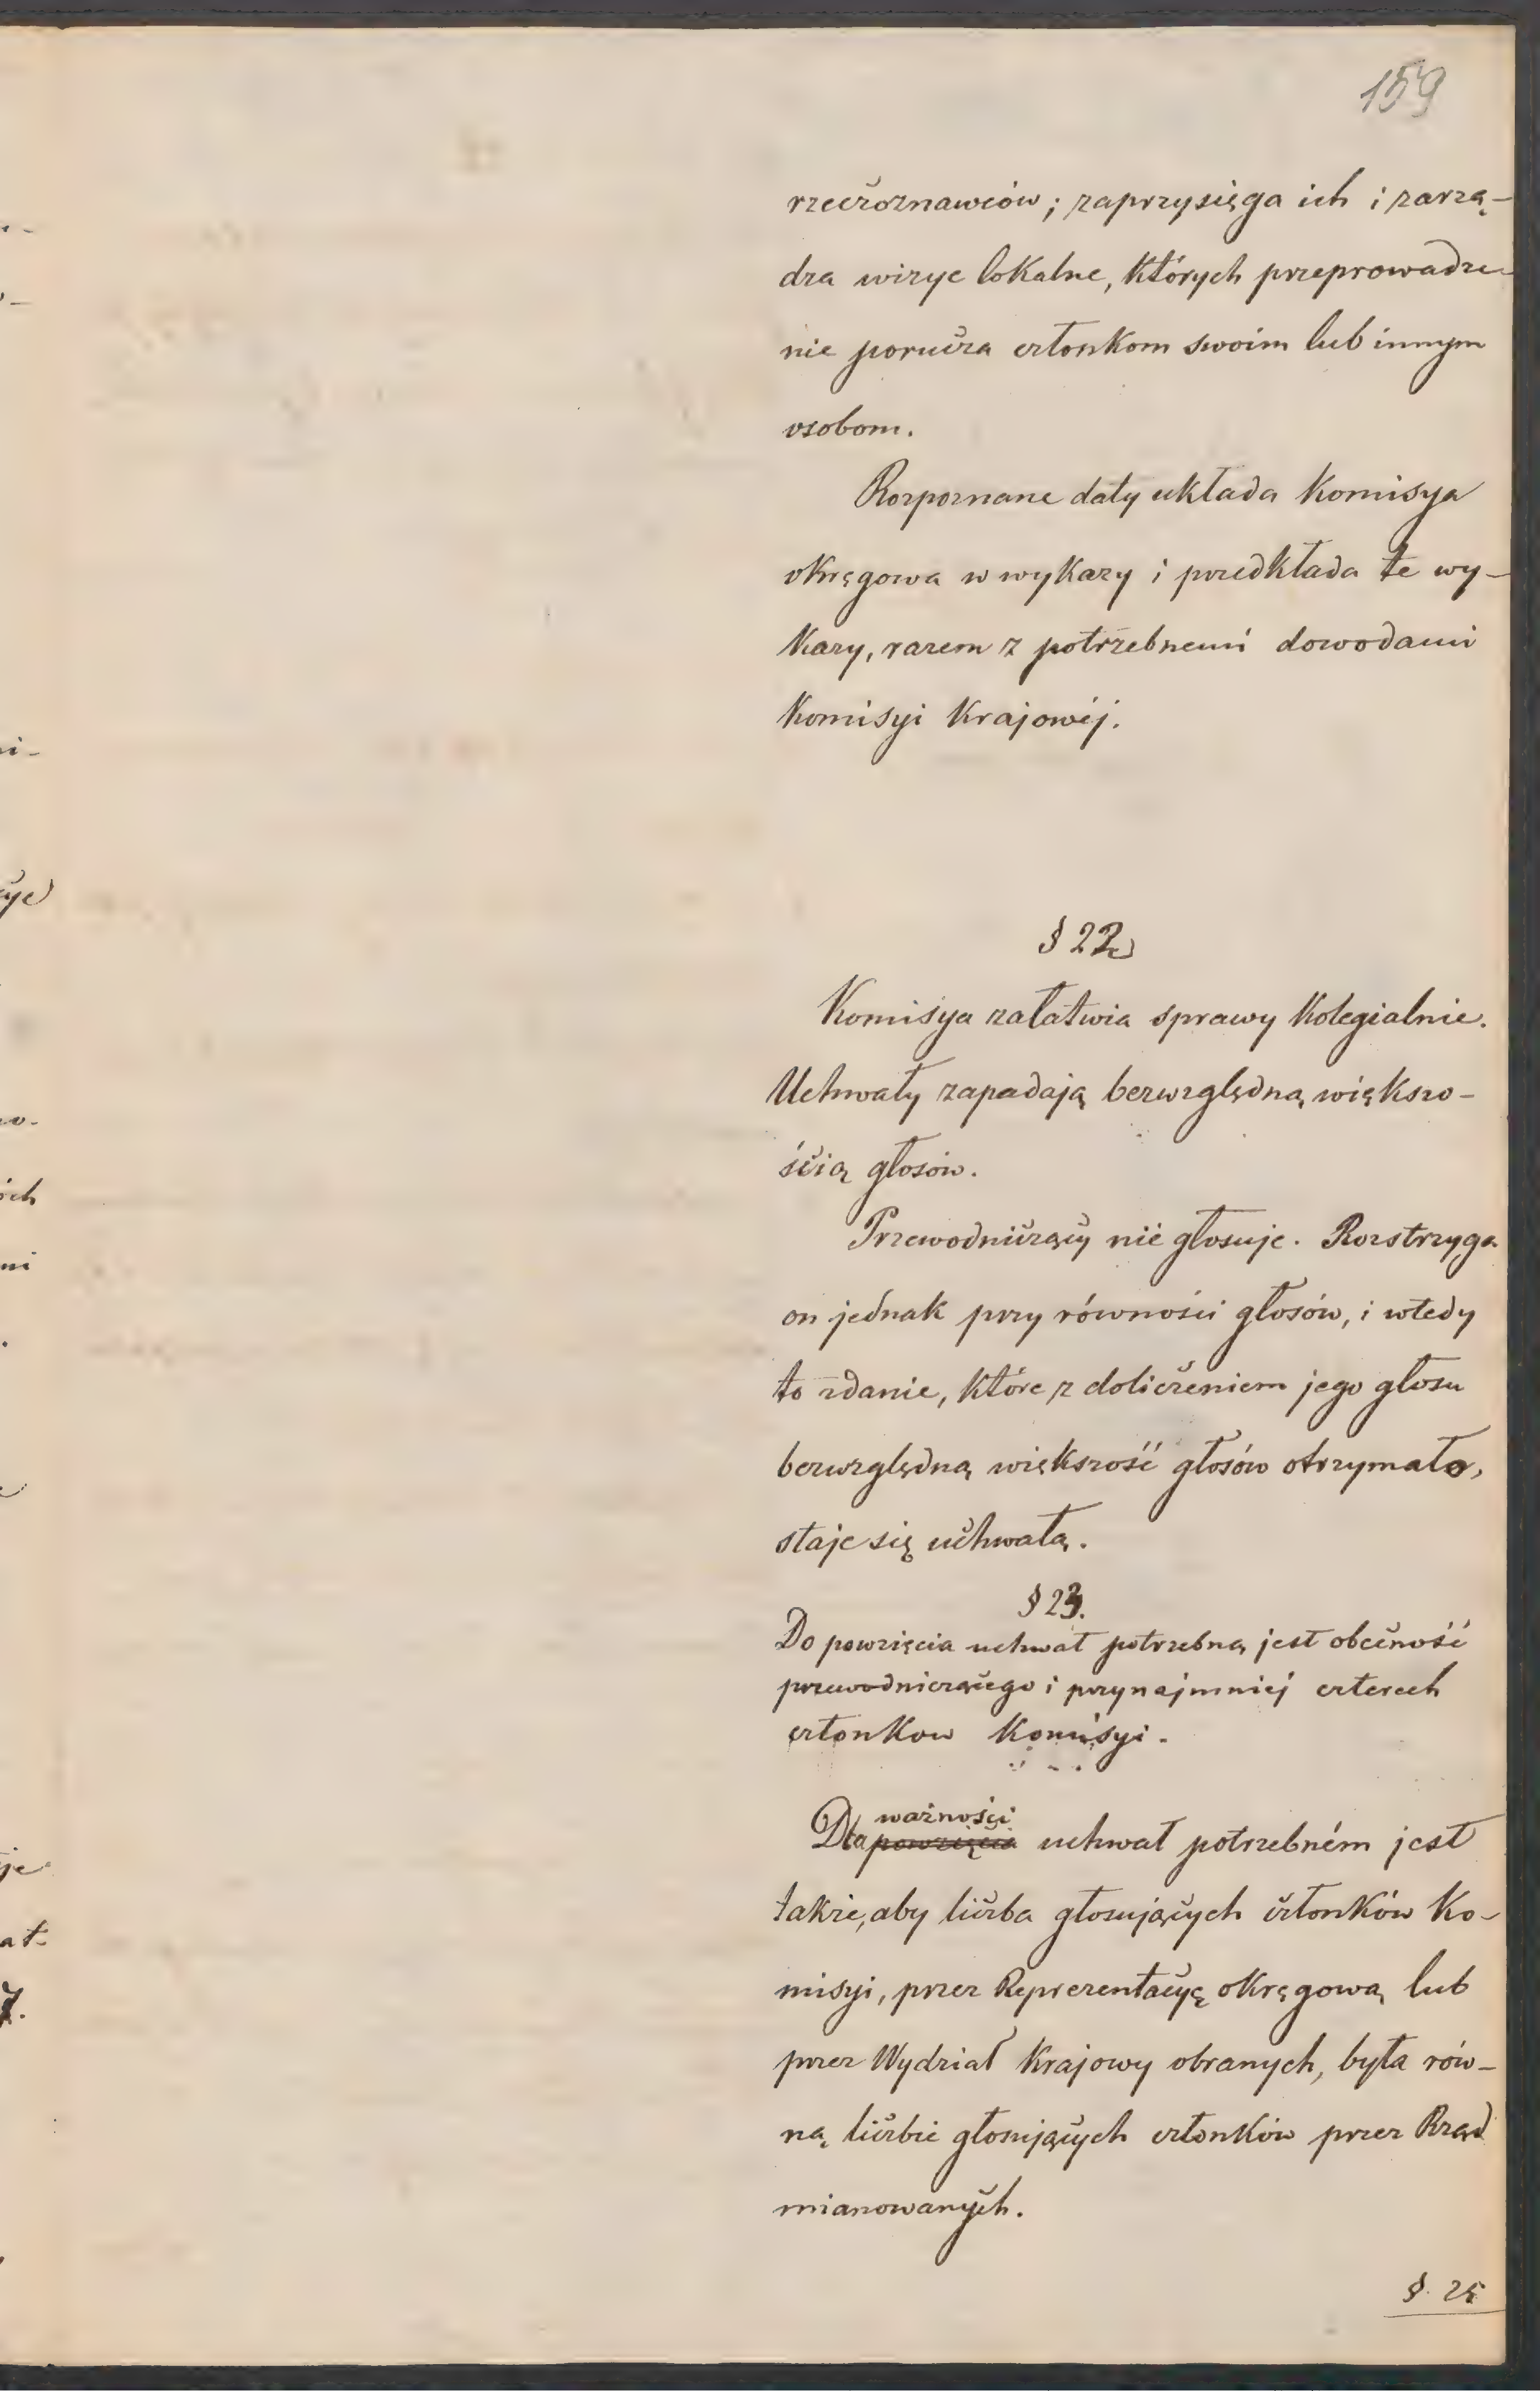 159
rzeczoznawców; zaprzysięga ich i zarzą-
dza wizye lokalne, których przeprowadze-
nie porucza członkom swoim lub innym
osobom.
Rozpoznane daty układa Komisya
okręgowa w wykazy i przedkłada te wy-
kazy, razem z potrzebnemi dowodami
Komisyi Krajowéj.
§ 22
Komisya załatwia sprawy kolegialnie.
Uchwały zapadają bezwzględną większo-
ścią głosów.
Przewodniczący nie głosuje. Rozstrzyga
on jednak przy równości głosów, i wtedy
to zdanie, które z doliczeniem jego głosu
bezwzględną większość głosów otrzymało,
staje się uchwałą.
§ 23.
Do powzięcia uchwał potrzebną jest obecność
przewodniczącego i przynajmniej czterech
członkow Komisyi.
ważności
Dla powzięcia uchwał potrzebném jest
także, aby liczba głosujących członków Ko-
misyi, przez Reprezentacyę okręgową lub
przez Wydział Krajowy obranych, była rów-
ną liczbie głosujących członków przez Rząd
mianowanych.
§. 24